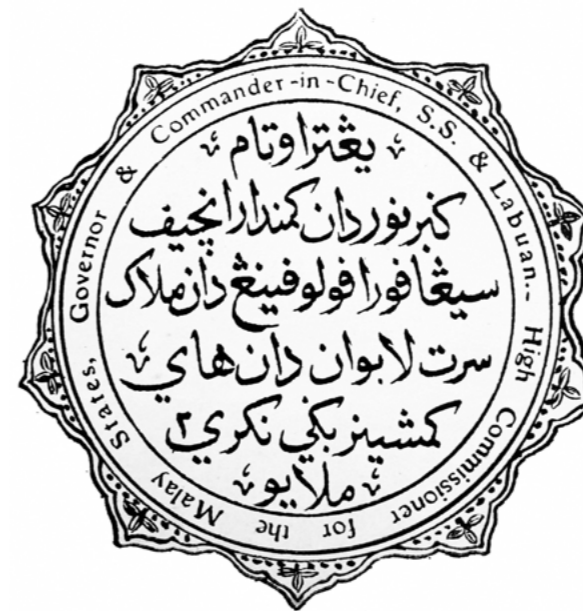 Governor & Commander-in-Chief, S.S. & Labuan.- High Commissioner for the Malay States,
يڠتراوتام
کبرنور دان کمندارانچيف
سيڠافورا فولوفينڠ دان ملاک
سرت لابوان دان هاي
کمشينر بکي نکري٢
ملايو